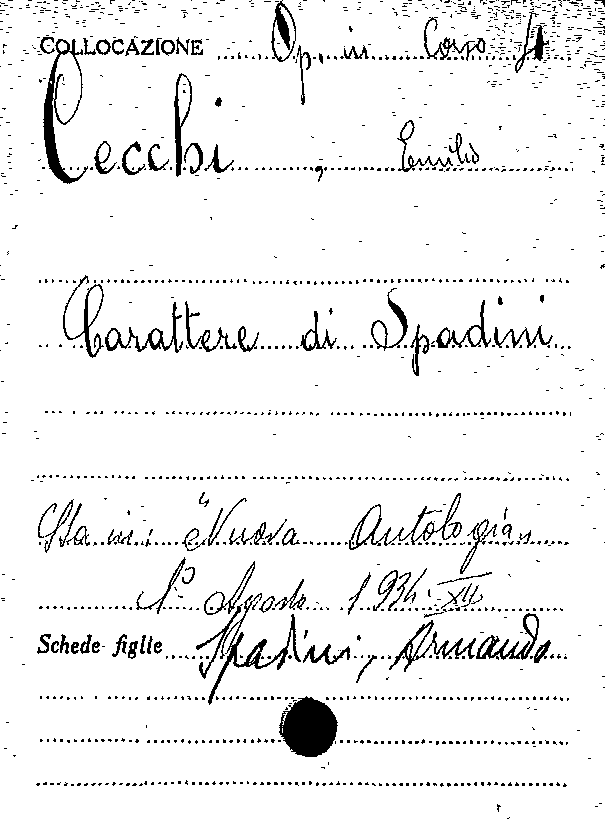 COLLOCAZIONE Op. in Corso 41
Cecchi, Emilio
Carattere di Spadini
Sta in: "Nuova Antologia"
1° Agosto 1934-XII
Schede figlie Spadini, Armando